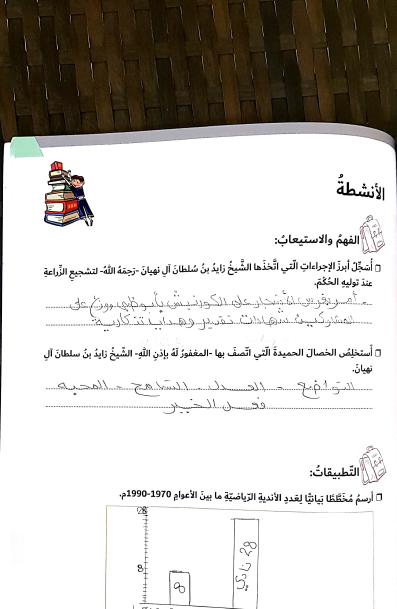 الأنشطةُ
الفهمُ والاستيعابُ:
أُسَجِّلُ أبرزَ الإجراءاتِ الّتي اتَّخذَها الشَّيخُ زايدُ بنُ سُلطانَ آلِ نهيانَ -رَحِمَهُ اللهُ- لتشجيعِ الزِّراعةِ
عندَ تولّيهِ الحُكْمَ.
- أمر بغرس الأشجار على الكورنيش بأبوظبي ووزع على
المشاركين شهادات تقدير وهدايا تذكارية
أَستخلِصُ الخصالَ الحميدةَ الّتي اتّصفَ بها -المغفورُ لَهُ بإذنِ اللهِ- الشّيخُ زايدُ بنُ سلطانَ آلِ
نهيانَ.
التواضع - العدل - التسامح - المحبه
فعل الخير
التّطبيقاتُ:
أَرسِمُ مُخَطَّطًا بيانيًّا لِعَددِ الأنديةِ الرّياضيّةِ ما بينَ الأعوامِ 1970-1990م.
28
28 نادي
8
8